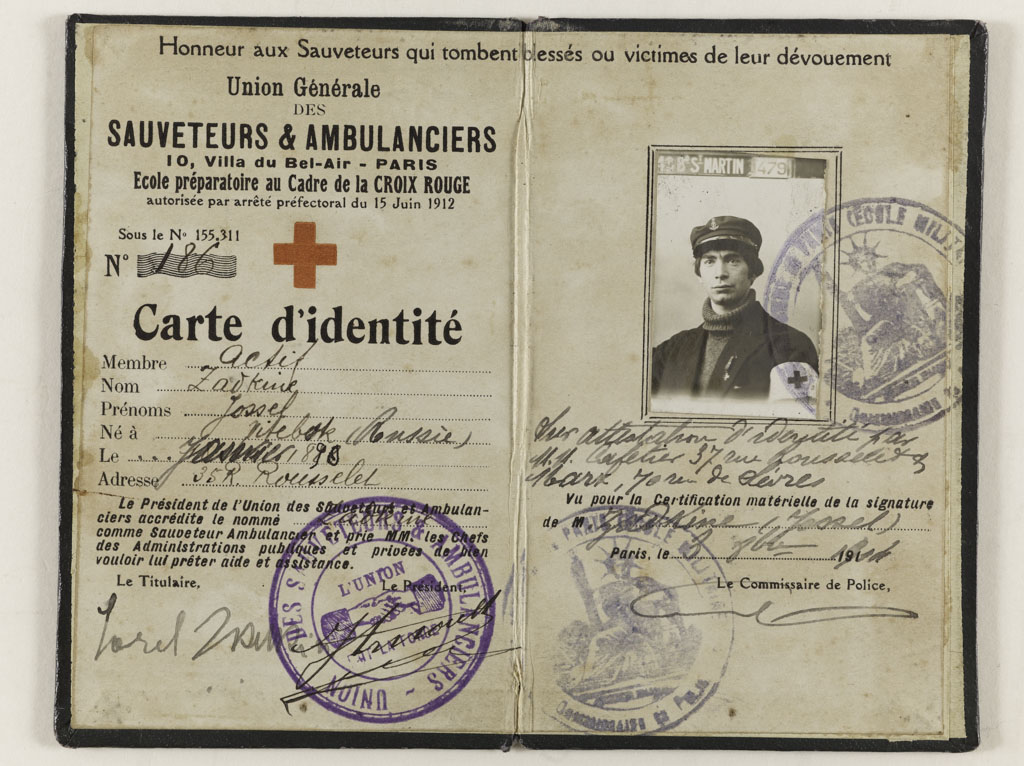 Honneur aux Sauveteurs qui tombent blessés ou victimes de leur dévouement
Union Générale
DES
SAUVETEURS & AMBULANCIERS
10, Villa du Bel-Air - PARIS
Ecole préparatoire au Cadre de la CROIX ROUGE
autorisée par arrêté préfectoral du 15 Juin 1912
Sous le Nº 155.311
Nº 186
Carte d'identité
Membre actif
Nom Zadkine
Prénoms Jossel
Né à Vitebsk (Russie)
Le Janvier 1890
Adresse 35 R. Rousselet
Le Président de l'Union des Sauveteurs et Ambulan-
ciers accrédite le nommé Zadkine
comme Sauveteur Ambulancier et prie MM. les Chefs
des Administrations publiques et privées de bien
vouloir lui prêter aide et assistance.
Le Titulaire,
Le Président,
UNION DES SAUVETEURS & AMBULANCIERS
L'UNION
FAIT LA FORCE
Bd St MARTIN 479
PARIS (ÉCOLE MILITAIRE
COMMISSAIRE DE POLICE
Sur attestation d'identité par
M.M. Cafetier 37 rue Rousselet &
Marx, 70 rue de Sèvres
Vu pour la Certification matérielle de la signature
de M. Zadkine (Jossel)
Paris, le 191
Le Commissaire de Police,
PARIS (ÉCOLE MILITAIRE
COMMISSAIRE DE POLICE